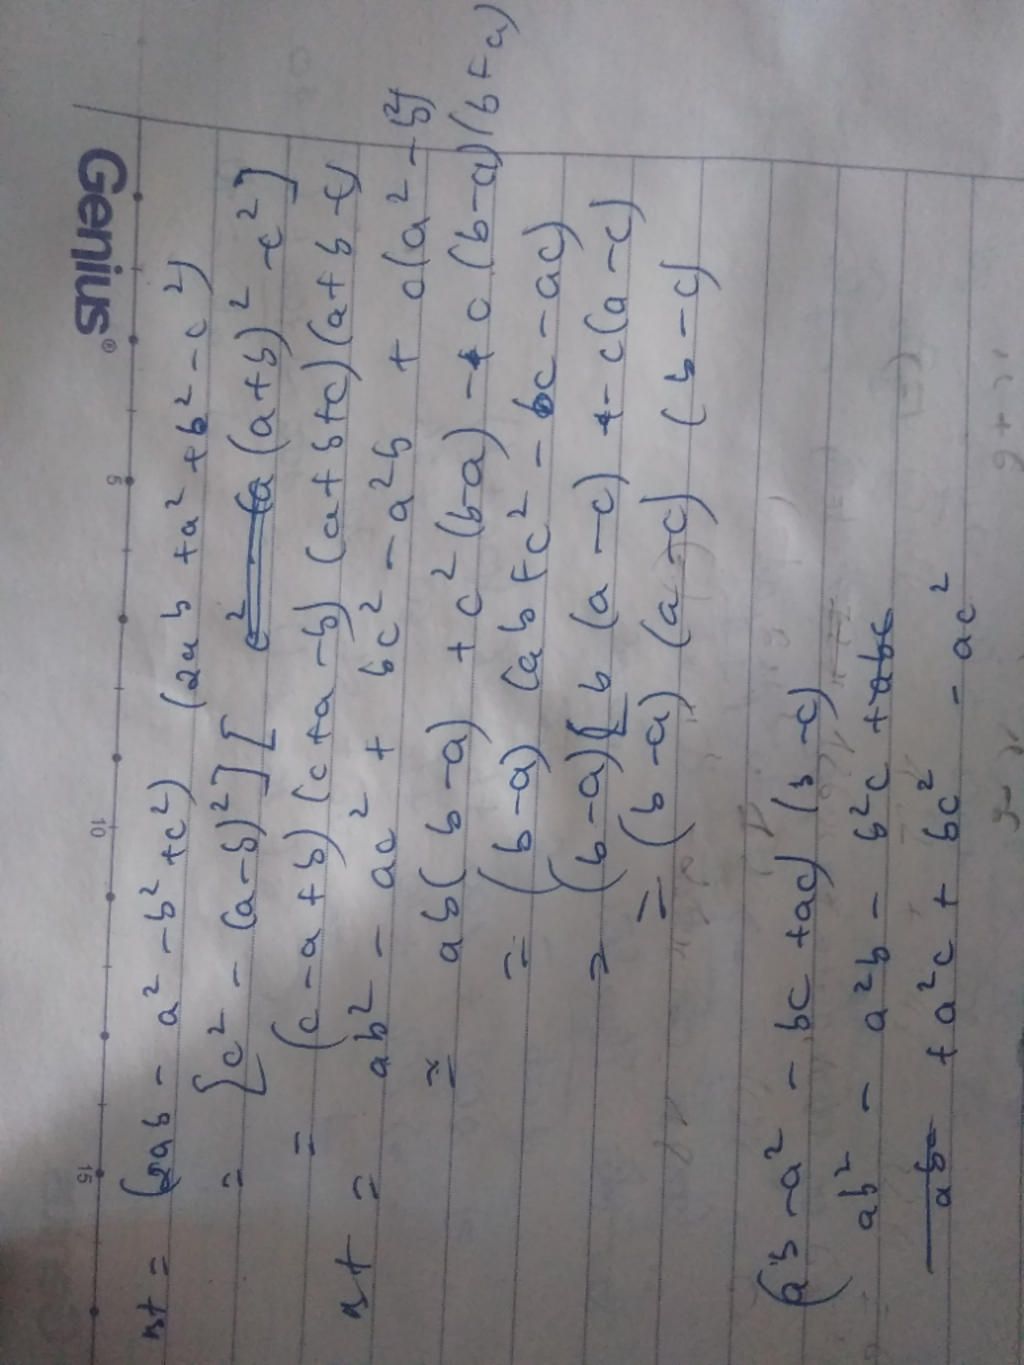 Genius®
5 10 15
nt = (2ab - a² - b² + c²) (2ab + a² + b² - c²)
= [c² - (a-b)²] [ (a+b)² - c²]
= (c - a + b) (c + a - b) (a + b + c) (a + b - c)
nt = ab² - ac² + bc² - a²b + c(a² - b²)
= ab(b - a) + c²(b-a) - c(b-a)(b+a)
= (b-a) (ab + c² - bc - ac)
= (b-a)[b(a-c) - c(a-c)]
= (b-a) (a-c) (b-c)
(ab - a² - bc + ac) (b - c)
ab² - a²b - b²c + abc
ab + a²c + bc² - ac²